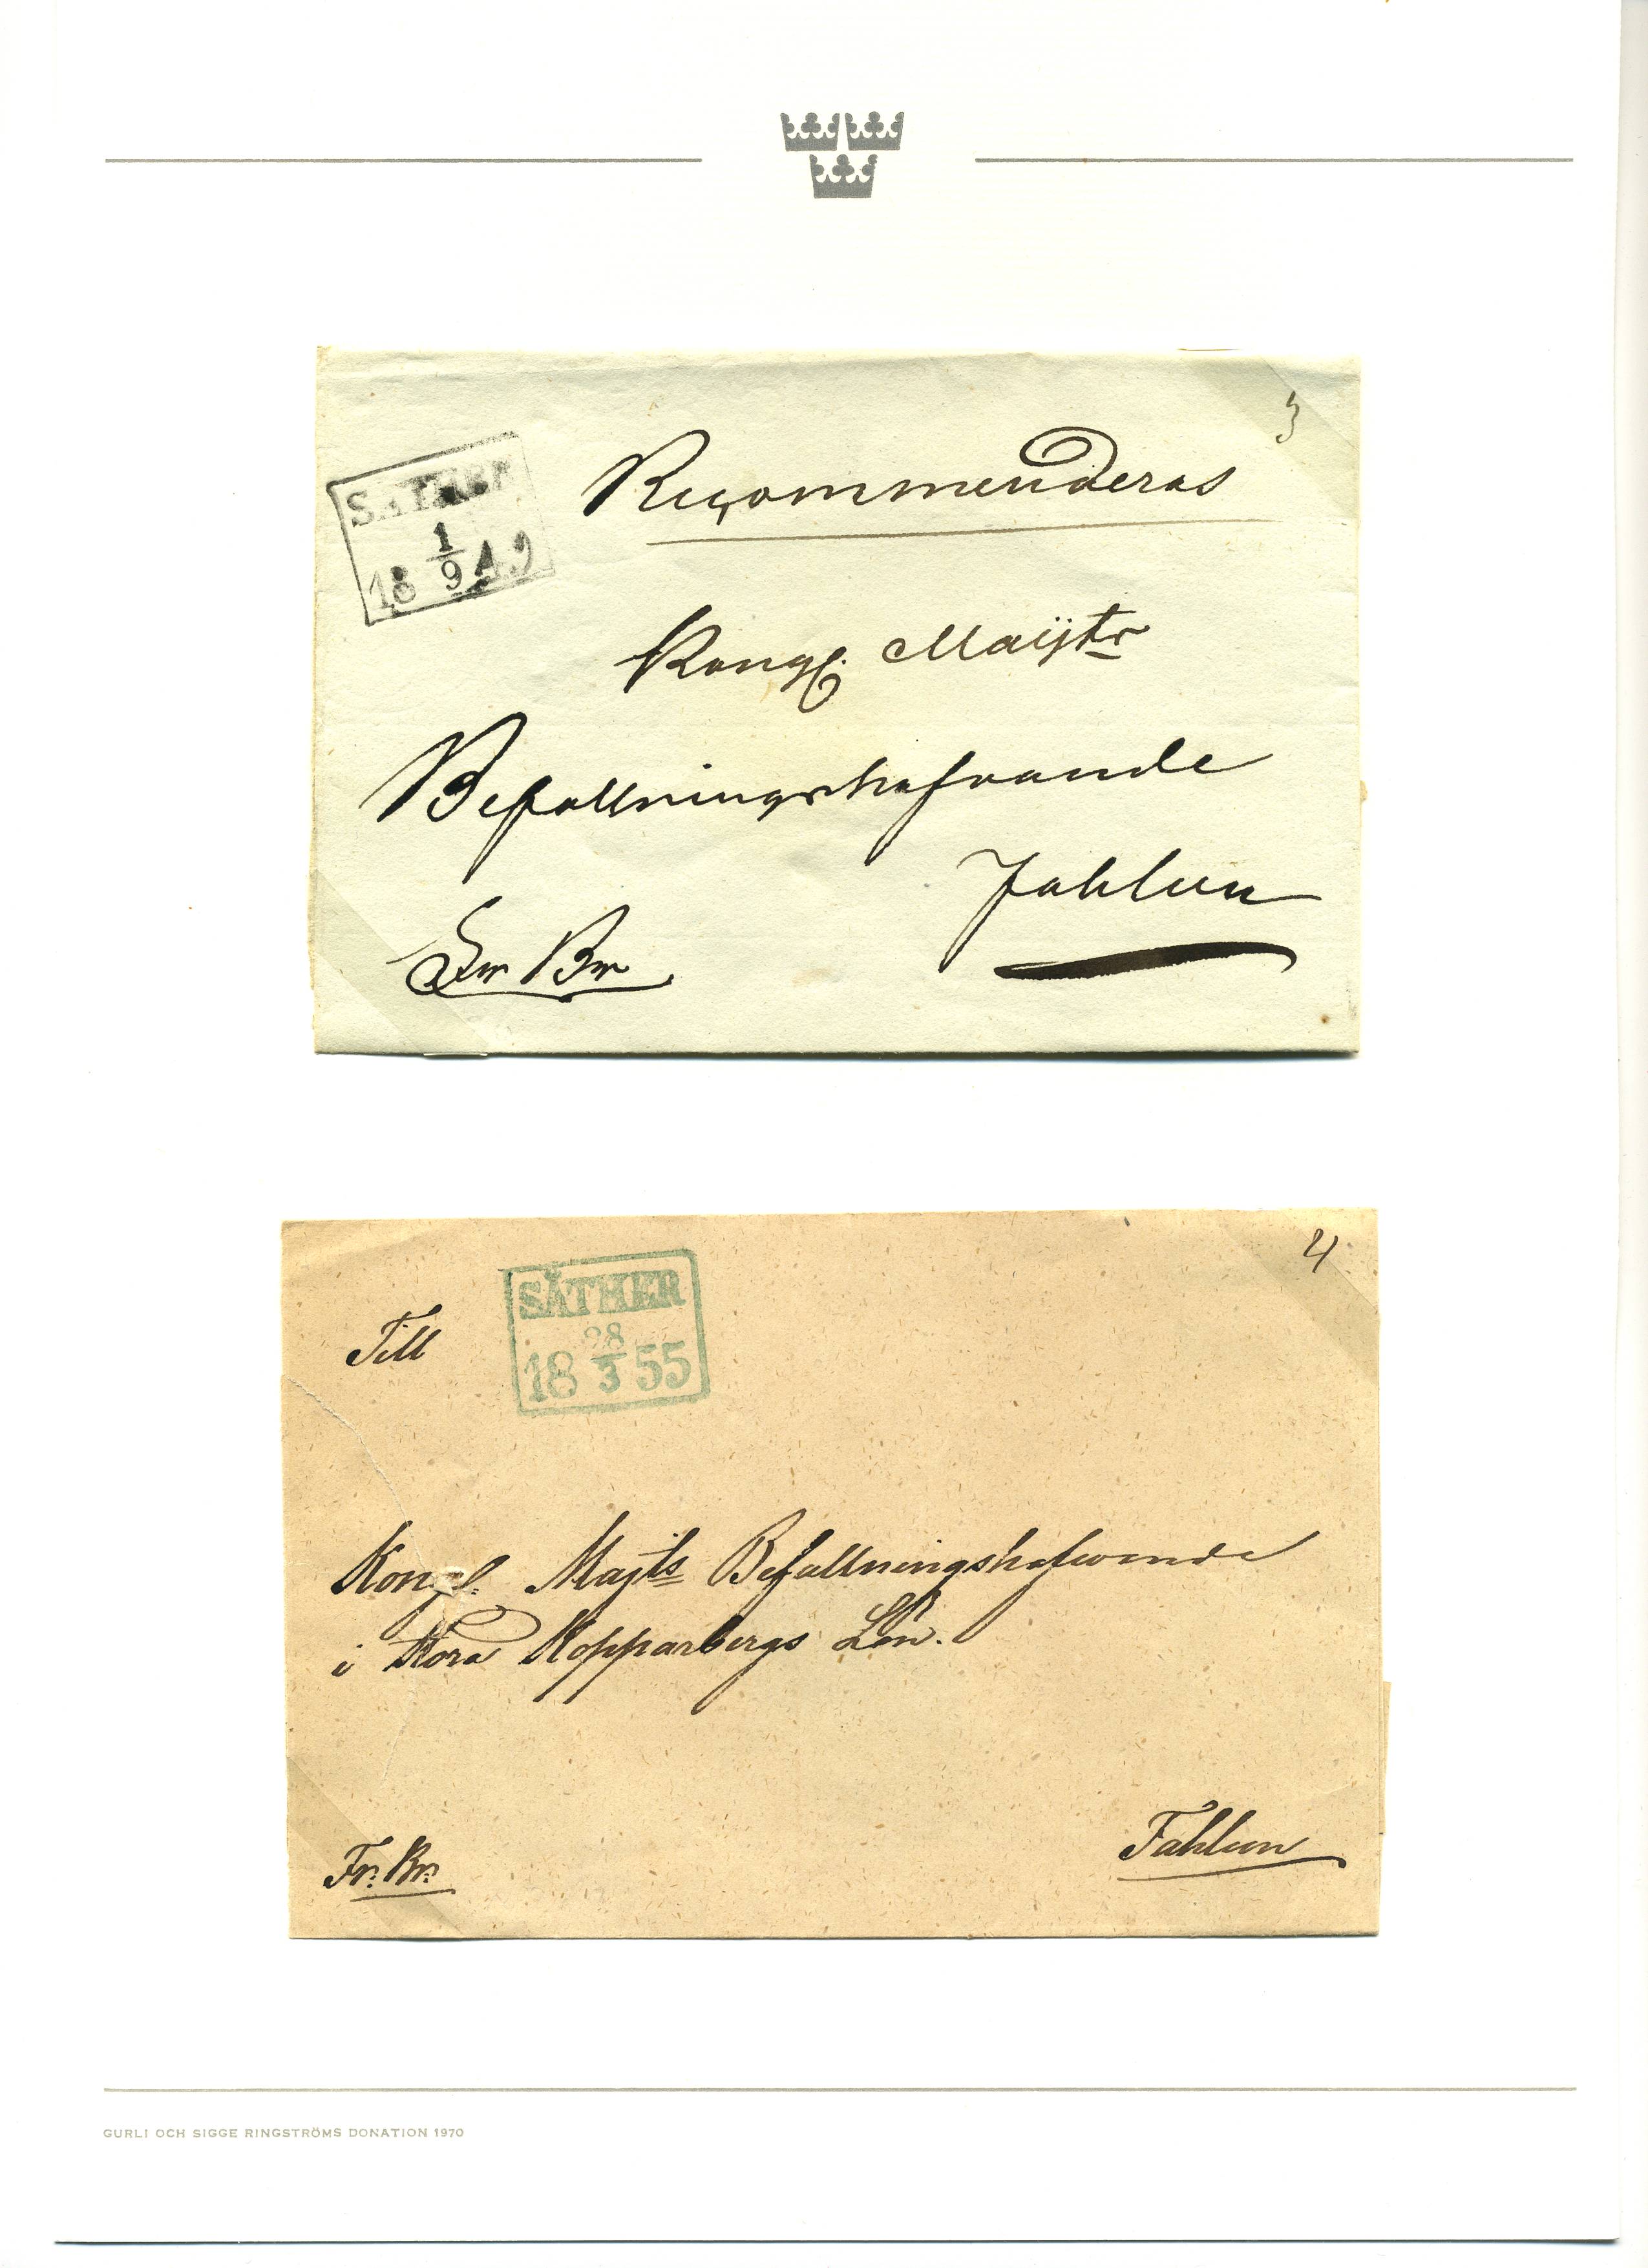 3
SÄTHER
1
9
18 49
Recommenderas
Kongl. Maijts
Befallningshafvande
Fahlun
Fr Br
4
SÄTHER
28
3
18 55
Till
Kongl. Majts Befallningshafwande
i Stora Kopparbergs Län.
Fahlun
Fr: Br:
GURLI OCH SIGGE RINGSTRÖMS DONATION 1970